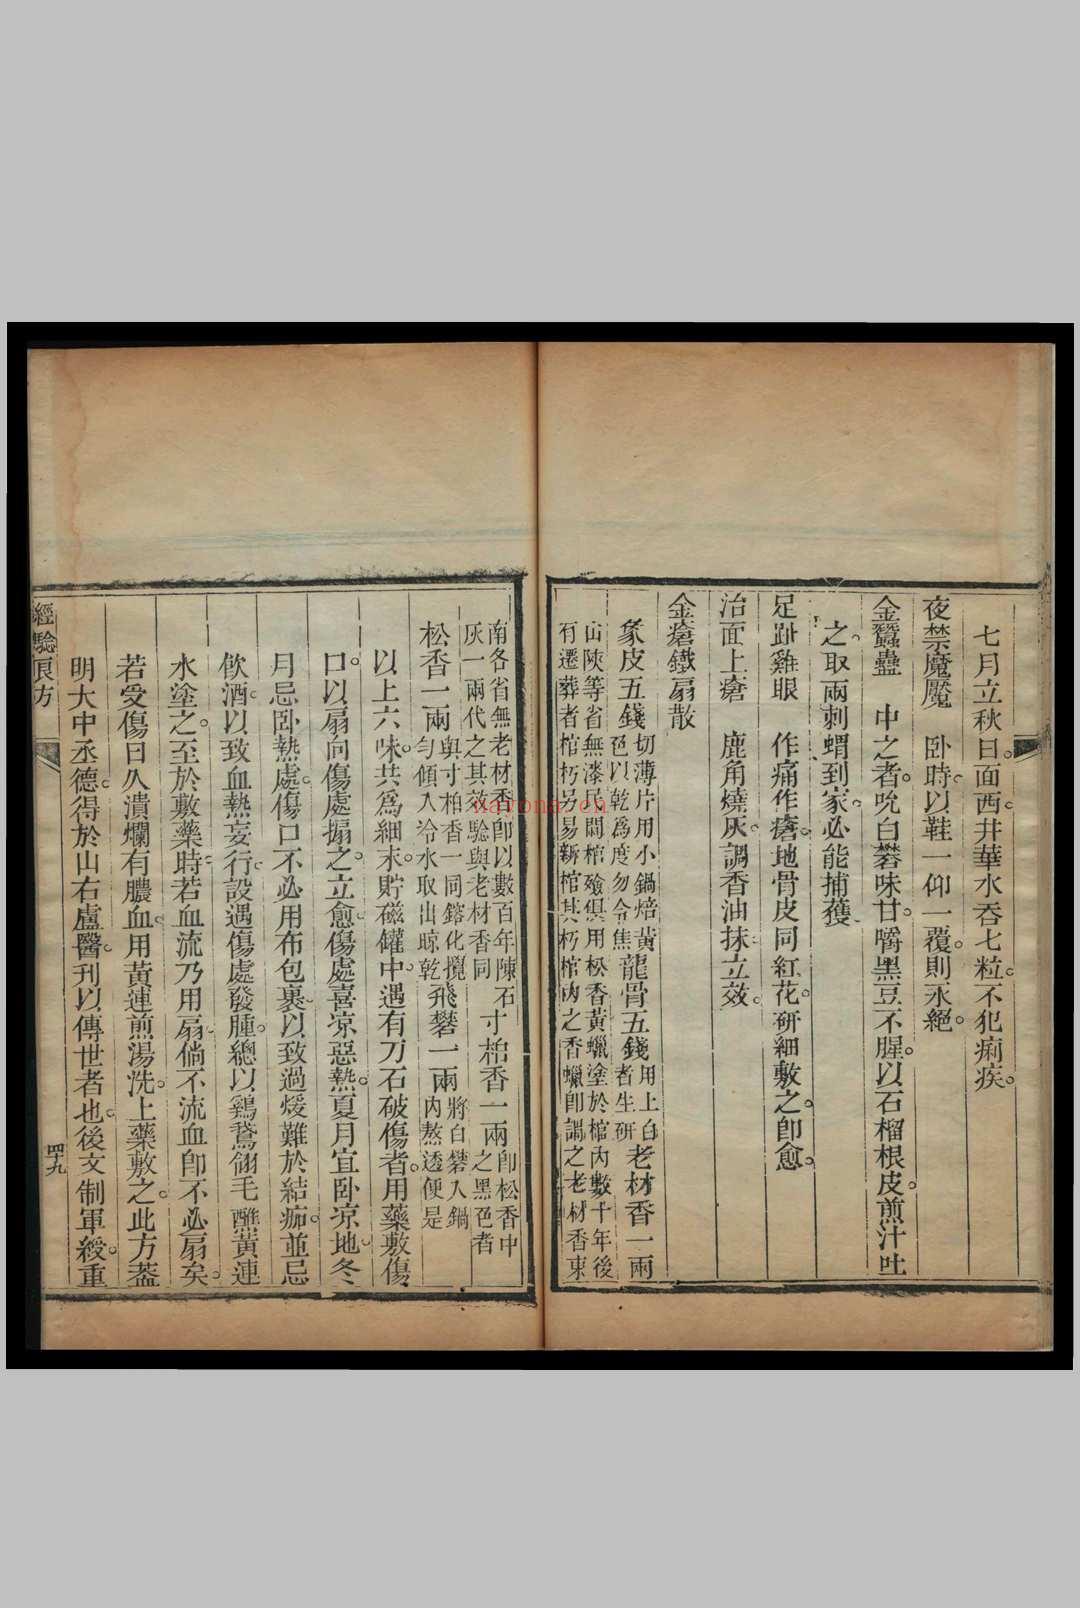 七月立秋日面西井華水吞七粒不犯痢疾
夜禁魔魘　臥時以鞋一仰一覆則永絕
金蠶蠱　中之者吮白礬味甘嚼黑豆不腥以石榴根皮煎汁吐
之取兩刺蝟到家必能捕獲
足趾雞眼　作痛作瘡地骨皮同紅花研細敷之卽愈
治面上瘡　鹿角燒灰調香油抹立效
金瘡鐵扇散
象皮五錢切薄片用小鍋焙黃色以乾爲度勿令焦龍骨五錢用上白者生研老材香一兩
山陝等省無漆民間棺殮俱用松香黃蠟塗於棺內數十年後
有遷葬者棺朽另易新棺其朽棺內之香蠟卽謂之老材香東
南各省無老材香卽以數百年陳石
灰一兩代之其效驗與老材香同寸柏香一兩卽松香中之黑色者
松香一兩與寸柏香一同鎔化攪勻傾入冷水取出晾乾飛礬一兩將白礬入鍋內熬透便是
以上六味共爲細末貯磁罐中遇有刀石破傷者用藥敷傷
口以扇向傷處搧之立愈傷處喜凉惡熱夏月宜臥凉地冬
月忌臥熱處傷口不必用布包裹以致過煖難於結痂並忌
飲酒以致血熱妄行設遇傷處發腫總以鷄鵞翎毛蘸黃連
水塗之至於敷藥時若血流乃用扇倘不流血卽不必扇矣
若受傷日久潰爛有膿血用黃連煎湯洗上藥敷之此方葢
明大中丞德得於山右盧醫刊以傳世者也後文制軍綬重
經驗良方
四十九
nayona.cn